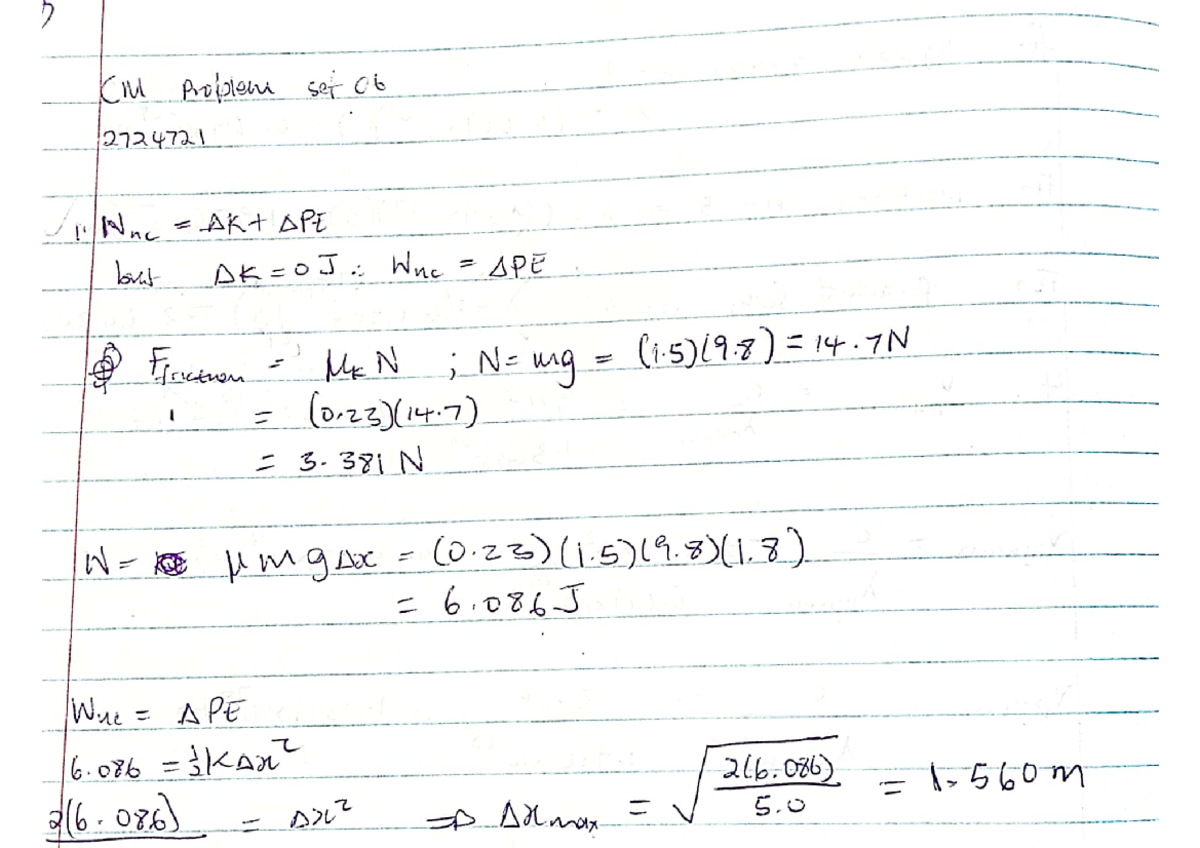 CM Problem set 06
2724721
1. Wnc = ΔK + ΔPE
but ΔK = 0 J ∴ Wnc = ΔPE
Ffriction = μk N ; N = mg = (1.5)(9.8) = 14.7 N
" = (0.23)(14.7)
= 3.381 N
W = μmgΔx = (0.23)(1.5)(9.8)(1.8)
= 6.086 J
Wnc = ΔPE
6.086 = ½KΔx²
2(6.086) = Δx² ⇒ Δxmax = √(2(6.086)/5.0) = 1.560 m